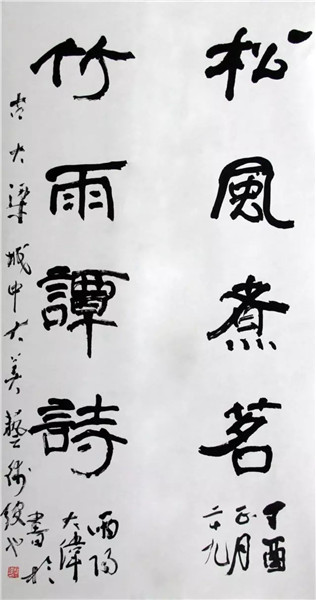 松風煮茗
丁酉
正月
二十九
竹雨譚詩
書於
古大梁城中大美藝術